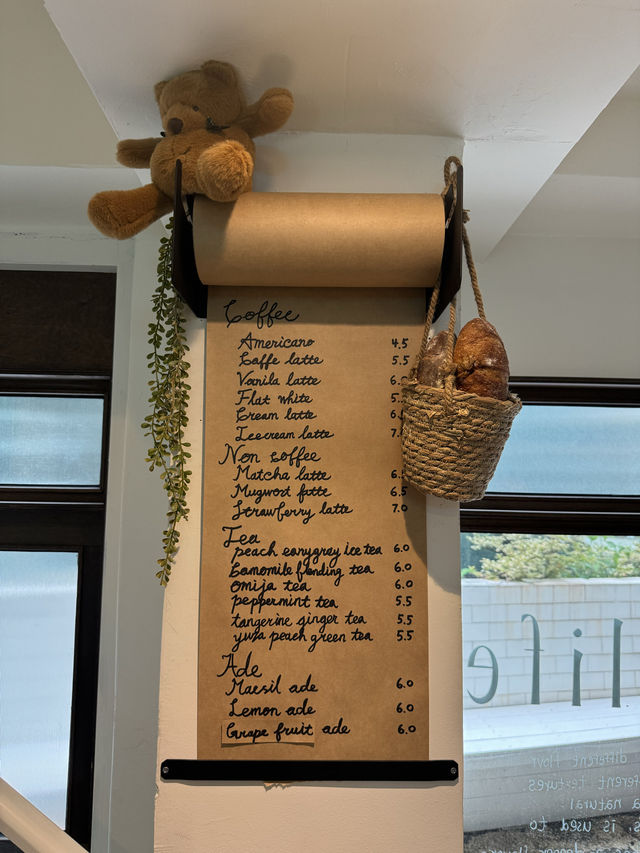 Coffee
Americano 4.5
Caffe latte 5.5
Vanila latte 6.
Flat white 5.
Cream latte 6.
Icecream latte 7.
Non coffee
Matcha latte 6.
Mugwort latte 6.5
Strawberry latte 7.0
Tea
peach earygrey ice tea 6.0
Camomile blending tea 6.0
omija tea 6.0
peppermint tea 5.5
tangerine ginger tea 5.5
yuza peach green tea 5.5
Ade
Maesil ade 6.0
Lemon ade 6.0
Grape fruit ade 6.0
life
different flour
different textures.
a natural
is used to